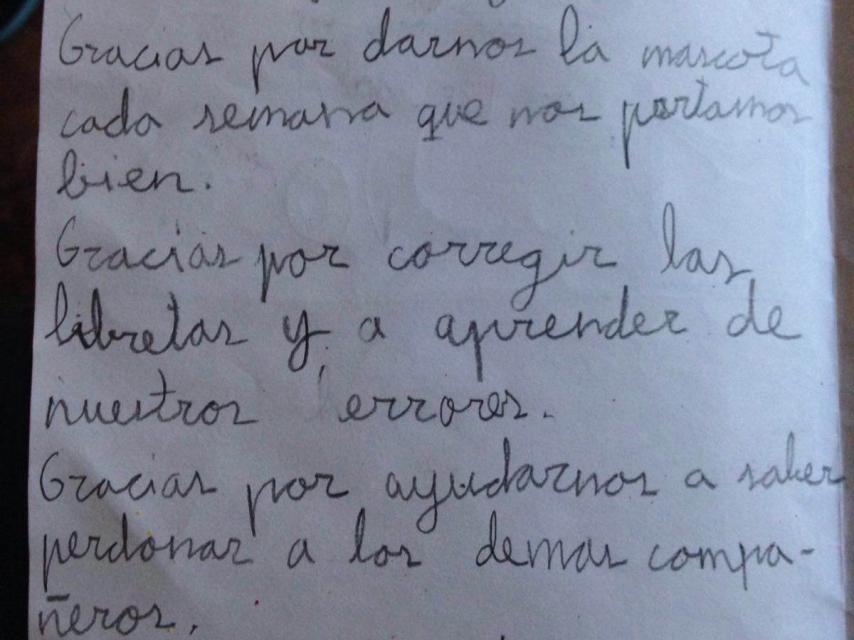 Gracias por darnos la mascota
cada semana que nos portamos
bien.
Gracias por corregir las
libretas y a aprender de
nuestros errores.
Gracias por ayudarnos a saber
perdonar a los demas compa-
ñeros.